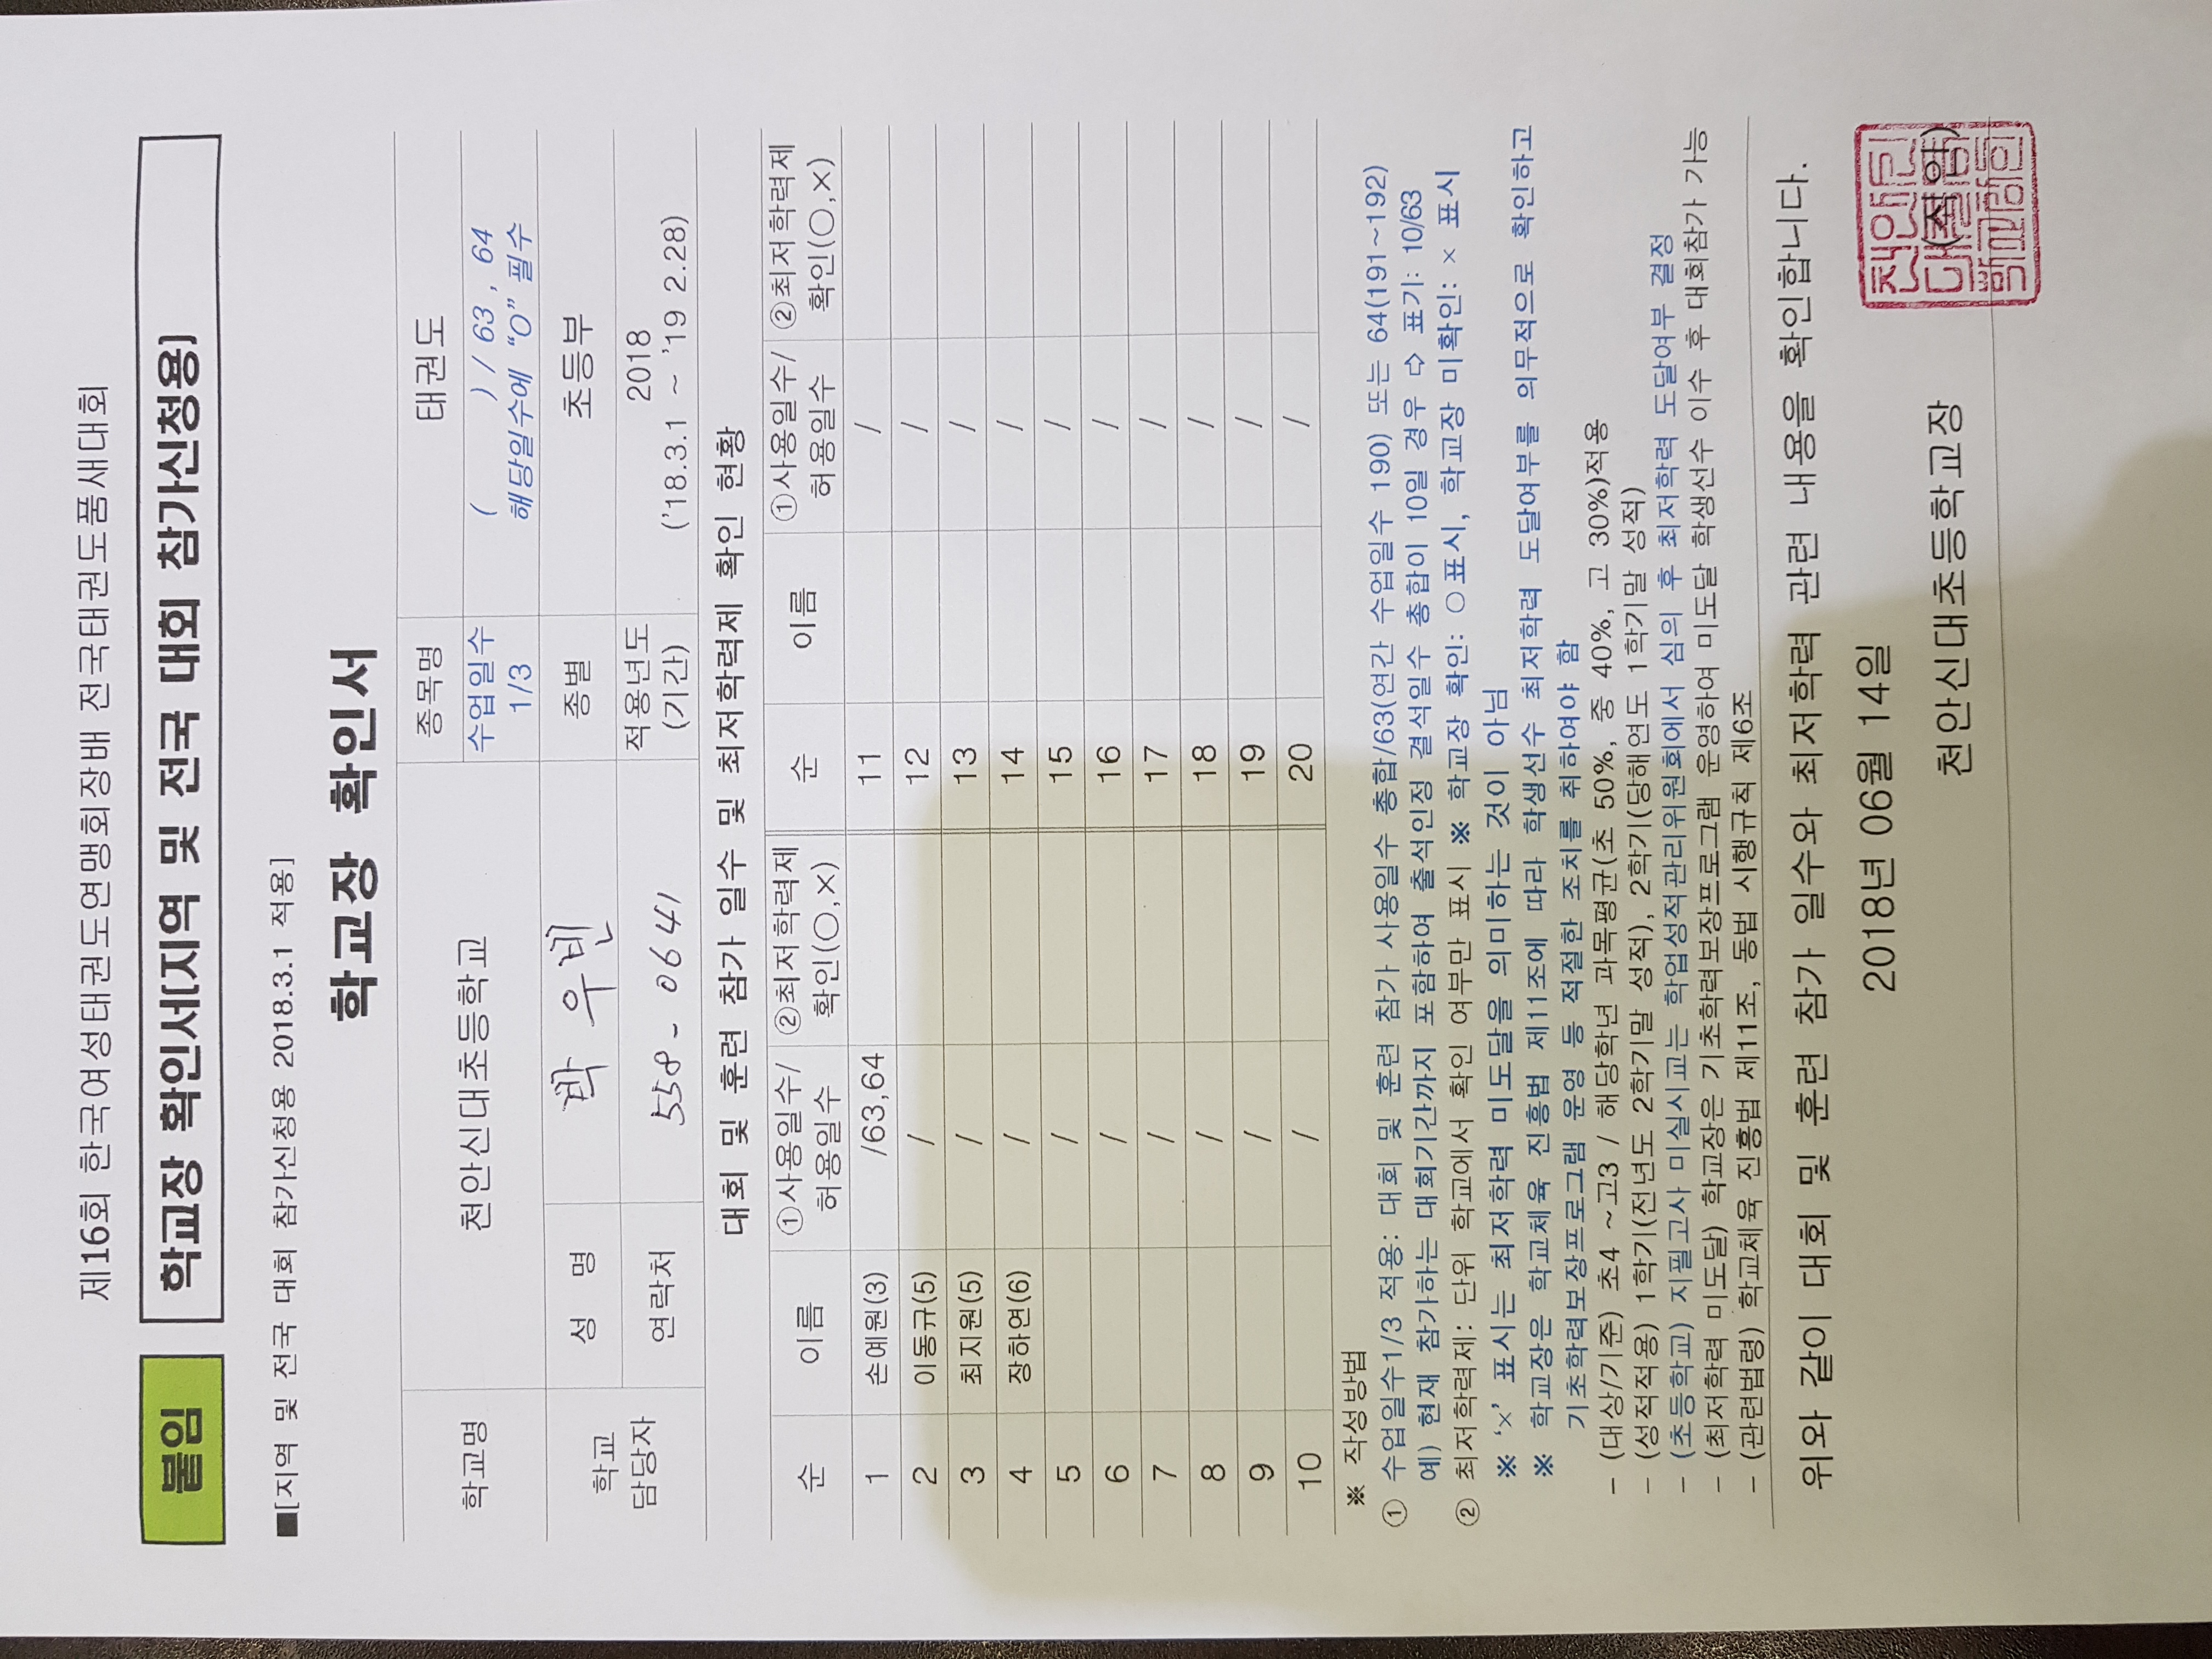 제16회 한국여성태권도연맹회장배 전국태권도품새대회
붙임 학교장 확인서(지역 및 전국 대회 참가신청용)
■[지역 및 전국 대회 참가신청용 2018.3.1 적용]
학교장 확인서
학교명 천안신대초등학교 종목명 태권도
수업일수 1/3 ( ) / 63 , 64
해당일수에 “O” 필수
학교 담당자 성 명 박우빈 종별 초등부
연락처 558-0641 적용년도 (기간) 2018
('18.3.1 ~ '19 2.28)
대회 및 훈련 참가 일수 및 최저학력제 확인 현황
순 이름 ①사용일수/허용일수 ②최저학력제 확인(○,×) 순 이름 ①사용일수/허용일수 ②최저학력제 확인(○,×)
1 손예원(3) /63,64 11 /
2 이동규(5) / 12 /
3 최지원(5) / 13 /
4 장하연(6) / 14 /
5 / 15 /
6 / 16 /
7 / 17 /
8 / 18 /
9 / 19 /
10 / 20 /
※ 작성방법
① 수업일수1/3 적용: 대회 및 훈련 참가 사용일수 총합/63(연간 수업일수 190) 또는 64(191~192)
예) 현재 참가하는 대회기간까지 포함하여 출석인정 결석일수 총합이 10일 경우 ⇨ 표기: 10/63
② 최저학력제: 단위 학교에서 확인 여부만 표시 ※ 학교장 확인: ○표시, 학교장 미확인: × 표시
※ '×' 표시는 최저학력 미도달을 의미하는 것이 아님
※ 학교장은 학교체육 진흥법 제11조에 따라 학생선수 최저학력 도달여부를 의무적으로 확인하고
기초학력보장프로그램 운영 등 적절한 조치를 취하여야 함
- (대상/기준) 초4 ~고3 / 해당학년 과목평균(초 50%, 중 40%, 고 30%)적용
- (성적적용) 1학기(전년도 2학기말 성적), 2학기(당해연도 1학기말 성적)
- (초등학교) 지필고사 미실시교는 학업성적관리위원회에서 심의 후 최저학력 도달여부 결정
- (최저학력 미도달) 학교장은 기초학력보장프로그램 운영하여 미도달 학생선수 이수 후 대회참가 가능
- (관련법령) 학교체육 진흥법 제11조, 동법 시행규칙 제6조
위와 같이 대회 및 훈련 참가 일수와 최저학력 관련 내용을 확인합니다.
2018년 06월 14일
천안신대초등학교장 (직인)
천안신대초등학교장의